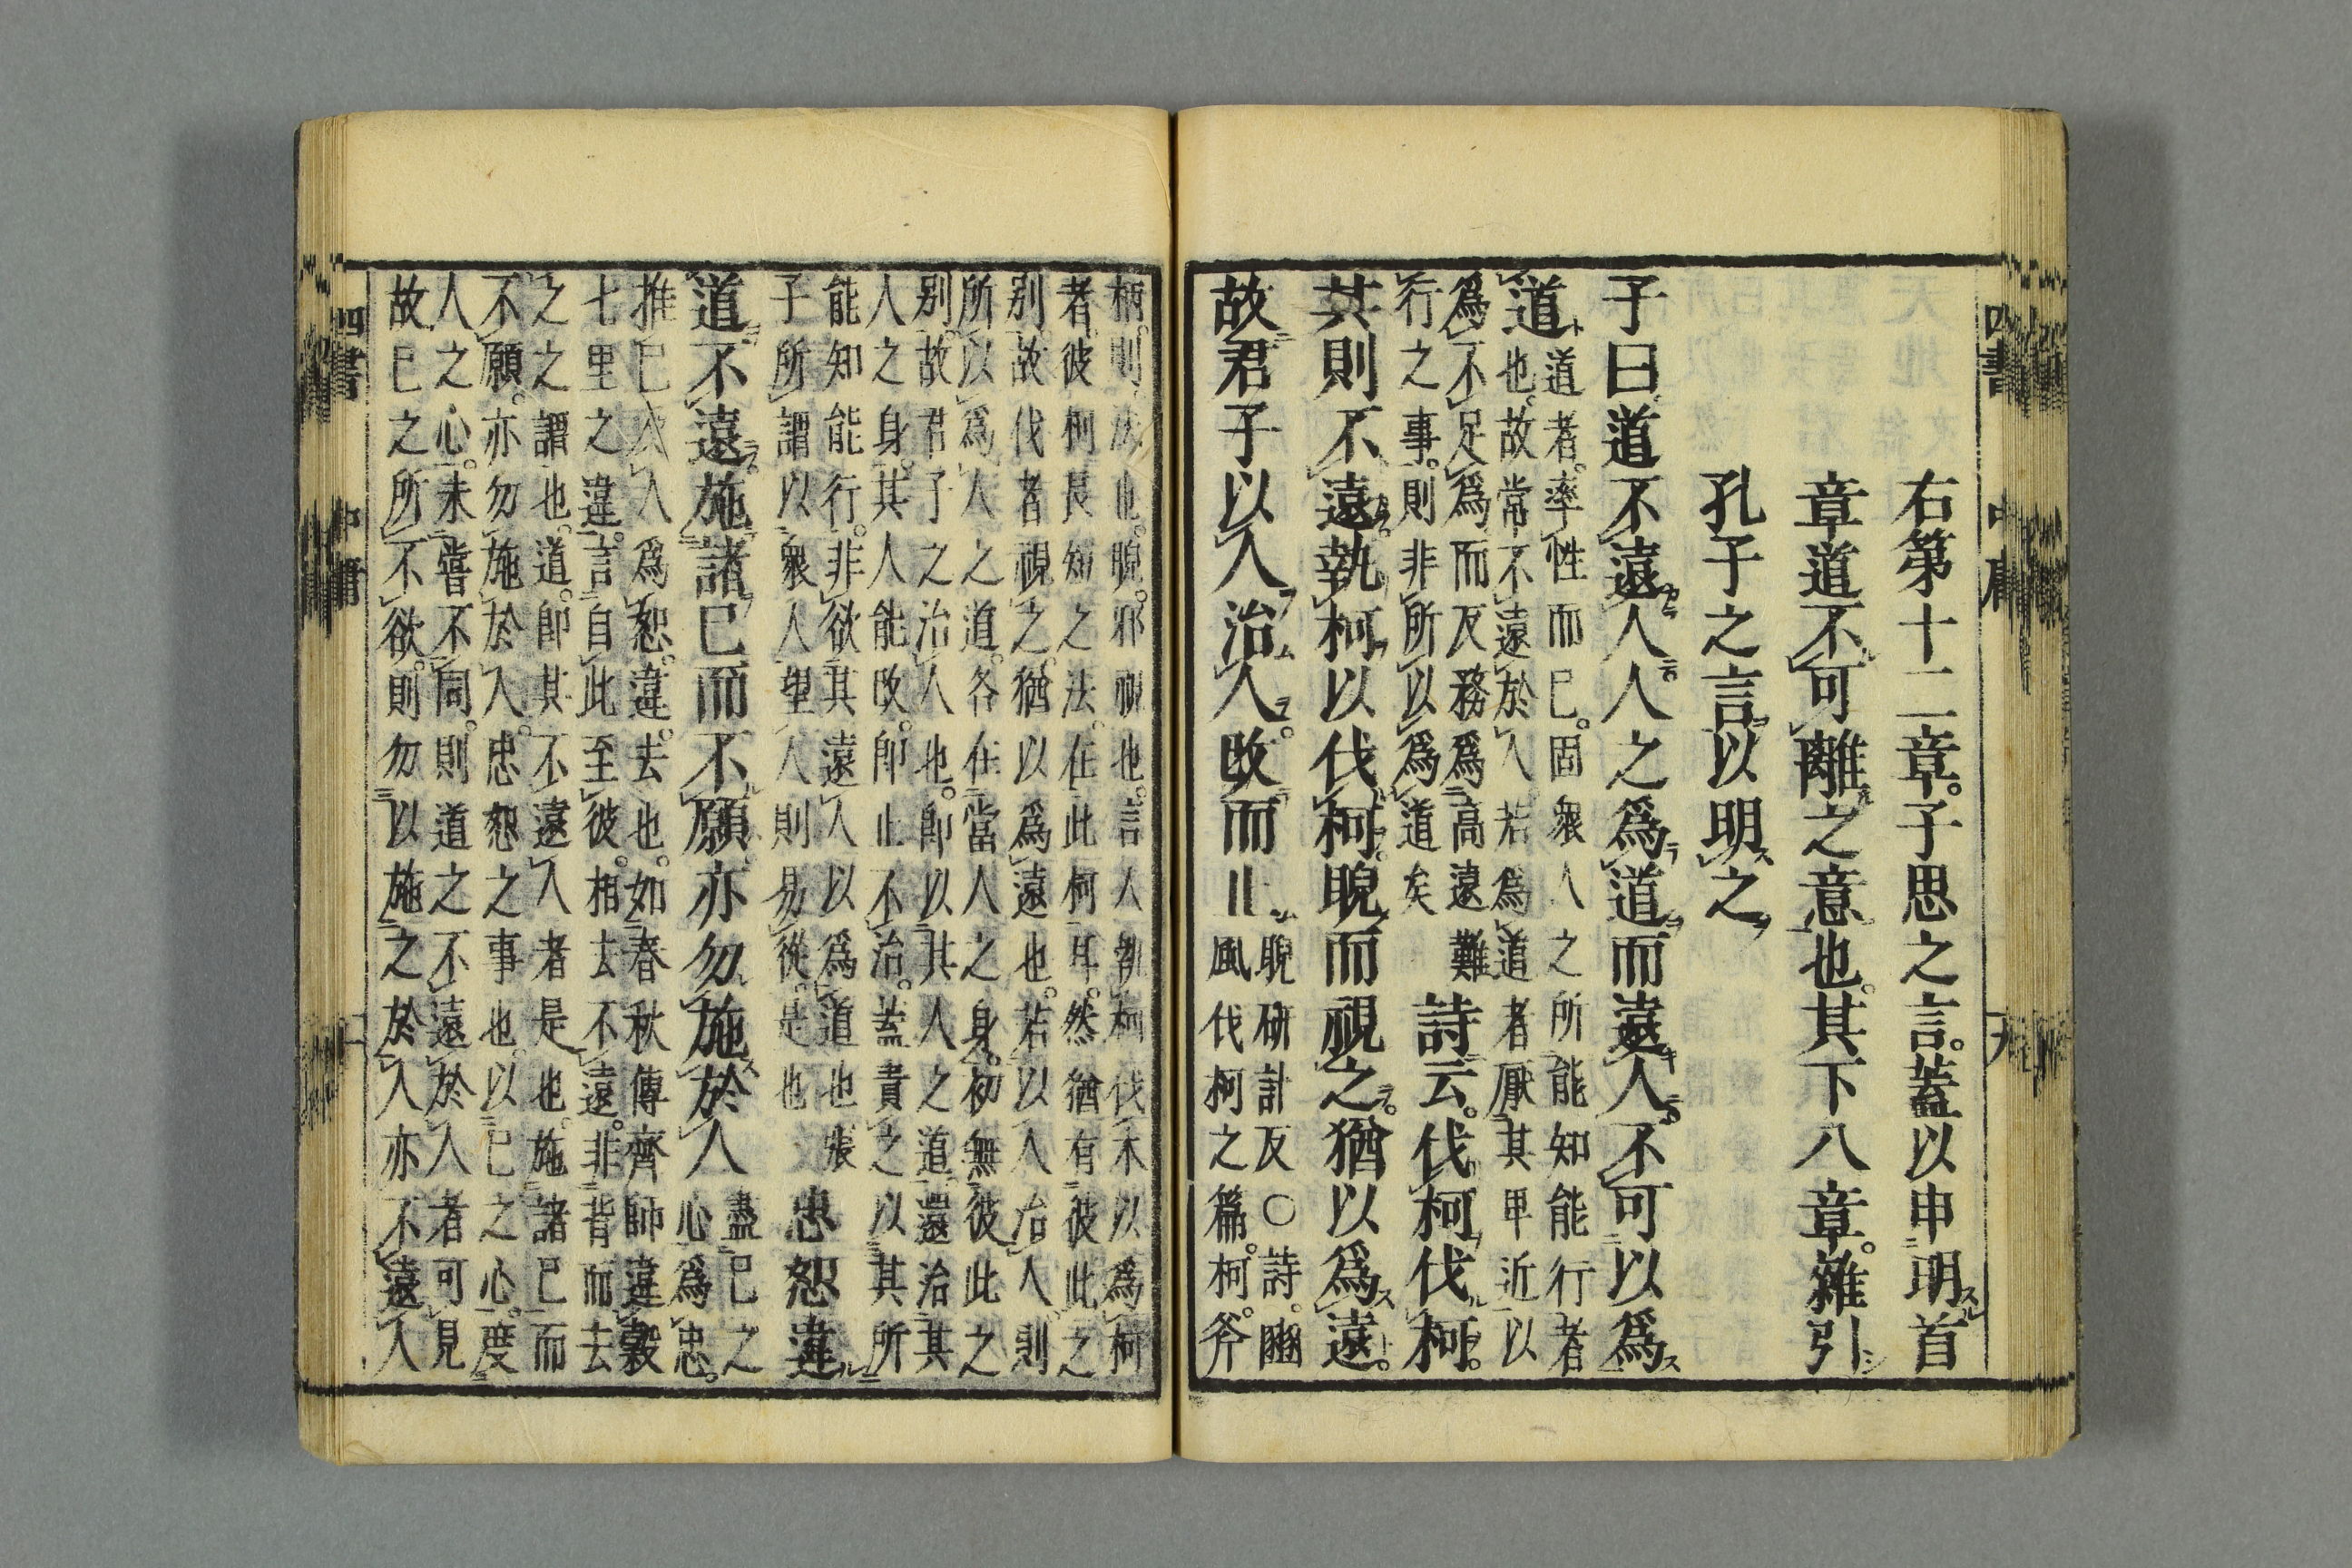 右第十二章。子思之言。蓋以申明首
章道不可離之意也。其下八章。雜引
孔子之言。以明之
子曰。道不遠人。人之爲道而遠人。不可以爲
道
道者。率性而已。固衆人之所能知能行者
也。故常不遠於人。若爲道者。厭其卑近。以
爲不足爲。而反務爲高遠難
行之事。則非所以爲道矣
詩云。伐柯伐柯。
其則不遠。執柯以伐柯。睨而視之。猶以爲遠。
故君子以人治人。改而止。
睨研計反○詩。豳
風伐柯之篇。柯。斧
柄。則。法也。睨。邪視也。言人執柯伐木以爲柯
者。彼柯長短之法。在此柯耳。然猶有彼此之
別。故伐者視之。猶以爲遠也。若以人治人。則
所以爲人之道。各在當人之身。初無彼此之
別。故君子之治人也。卽以其人之道。還治其
人之身。其人能改。卽止不治。蓋責之以其所
能知能行。非欲其遠人以爲道也張
子所謂以衆人望人則易從。是也
忠恕違
道不遠。施諸己而不願。亦勿施於人
盡己之
心爲忠。
推己及人爲恕。違。去也。如春秋傳齊師違穀
七里之違。言自此至彼。相去不遠。非背而去
之之謂也。道。卽其不遠人者是也。施諸己而
不願。亦勿施於人。忠恕之事也。以己之心。度
人之心。未嘗不同。則道之不遠於人者可見
故己之所不欲。則勿以施之於人亦不遠人
四書
中庸
四書
中庸